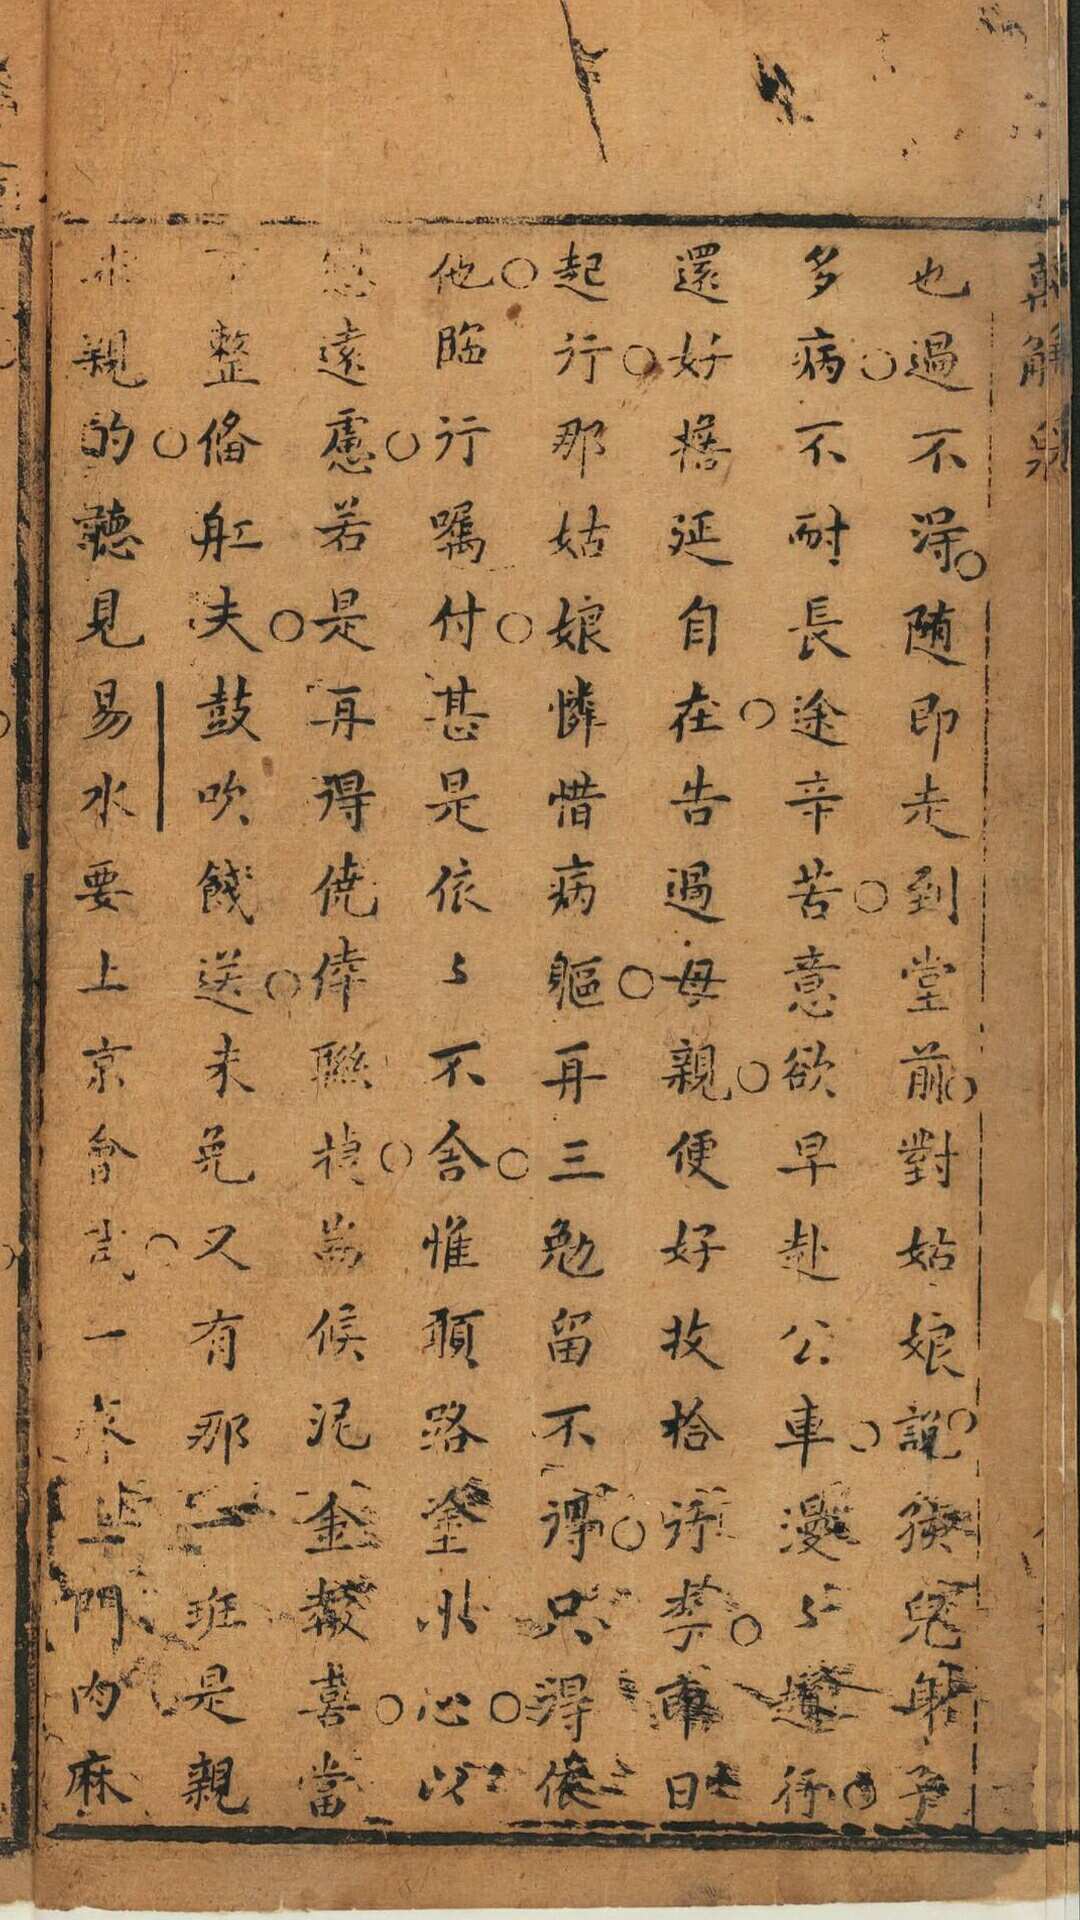 也過不得随即走到堂前對姑娘說侄兒身子
多病不耐長途辛苦意欲早赴公車漫〻趱行
還好擔延自在告過母親便好收拾行李南日
起行那姑娘憐惜病軀再三勉留不得只得依
他臨行囑付甚是依〻不舍惟願路塗小心以
慰遠慮若是再得僥倖聯捷為候泥金報喜當
下整備舡夫鼓吹餞送未免又有那一班是親
非親的聽見易水要上京會試一齊上門肉麻